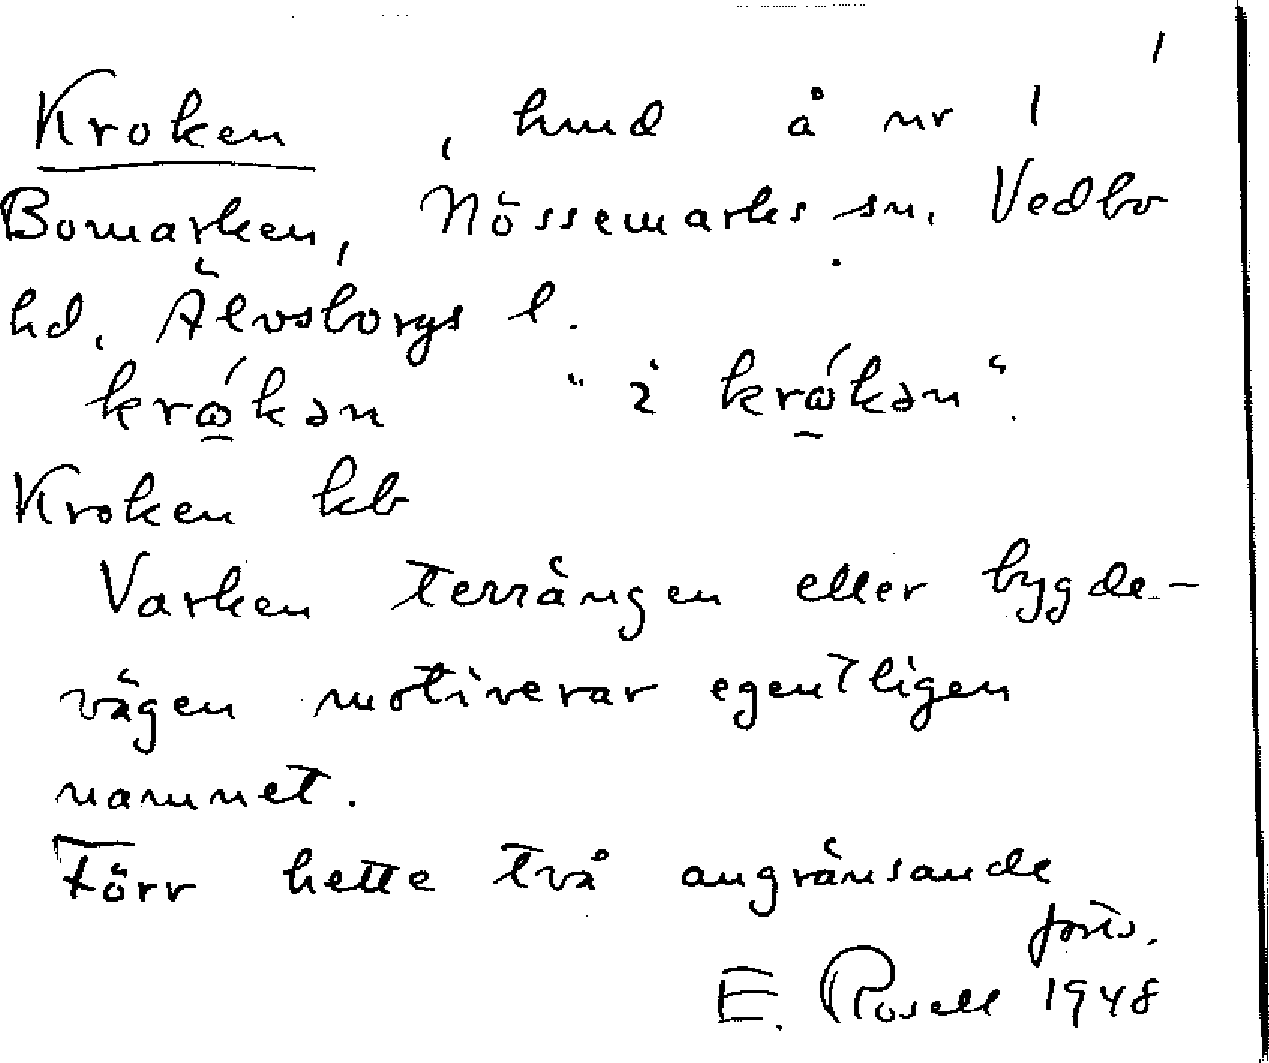 1
Kroken, hmd å nr 1
Bomarken, Nössemarks sn. Vedbo
hd. Älvsborgs l.
krώ̲kən "i krώ̲kən".
Kroken kb
Varken terrängen eller bygde-
vägen motiverar egentligen
namnet.
Förr hette två angränsande
forts.
E. Rosell 1948